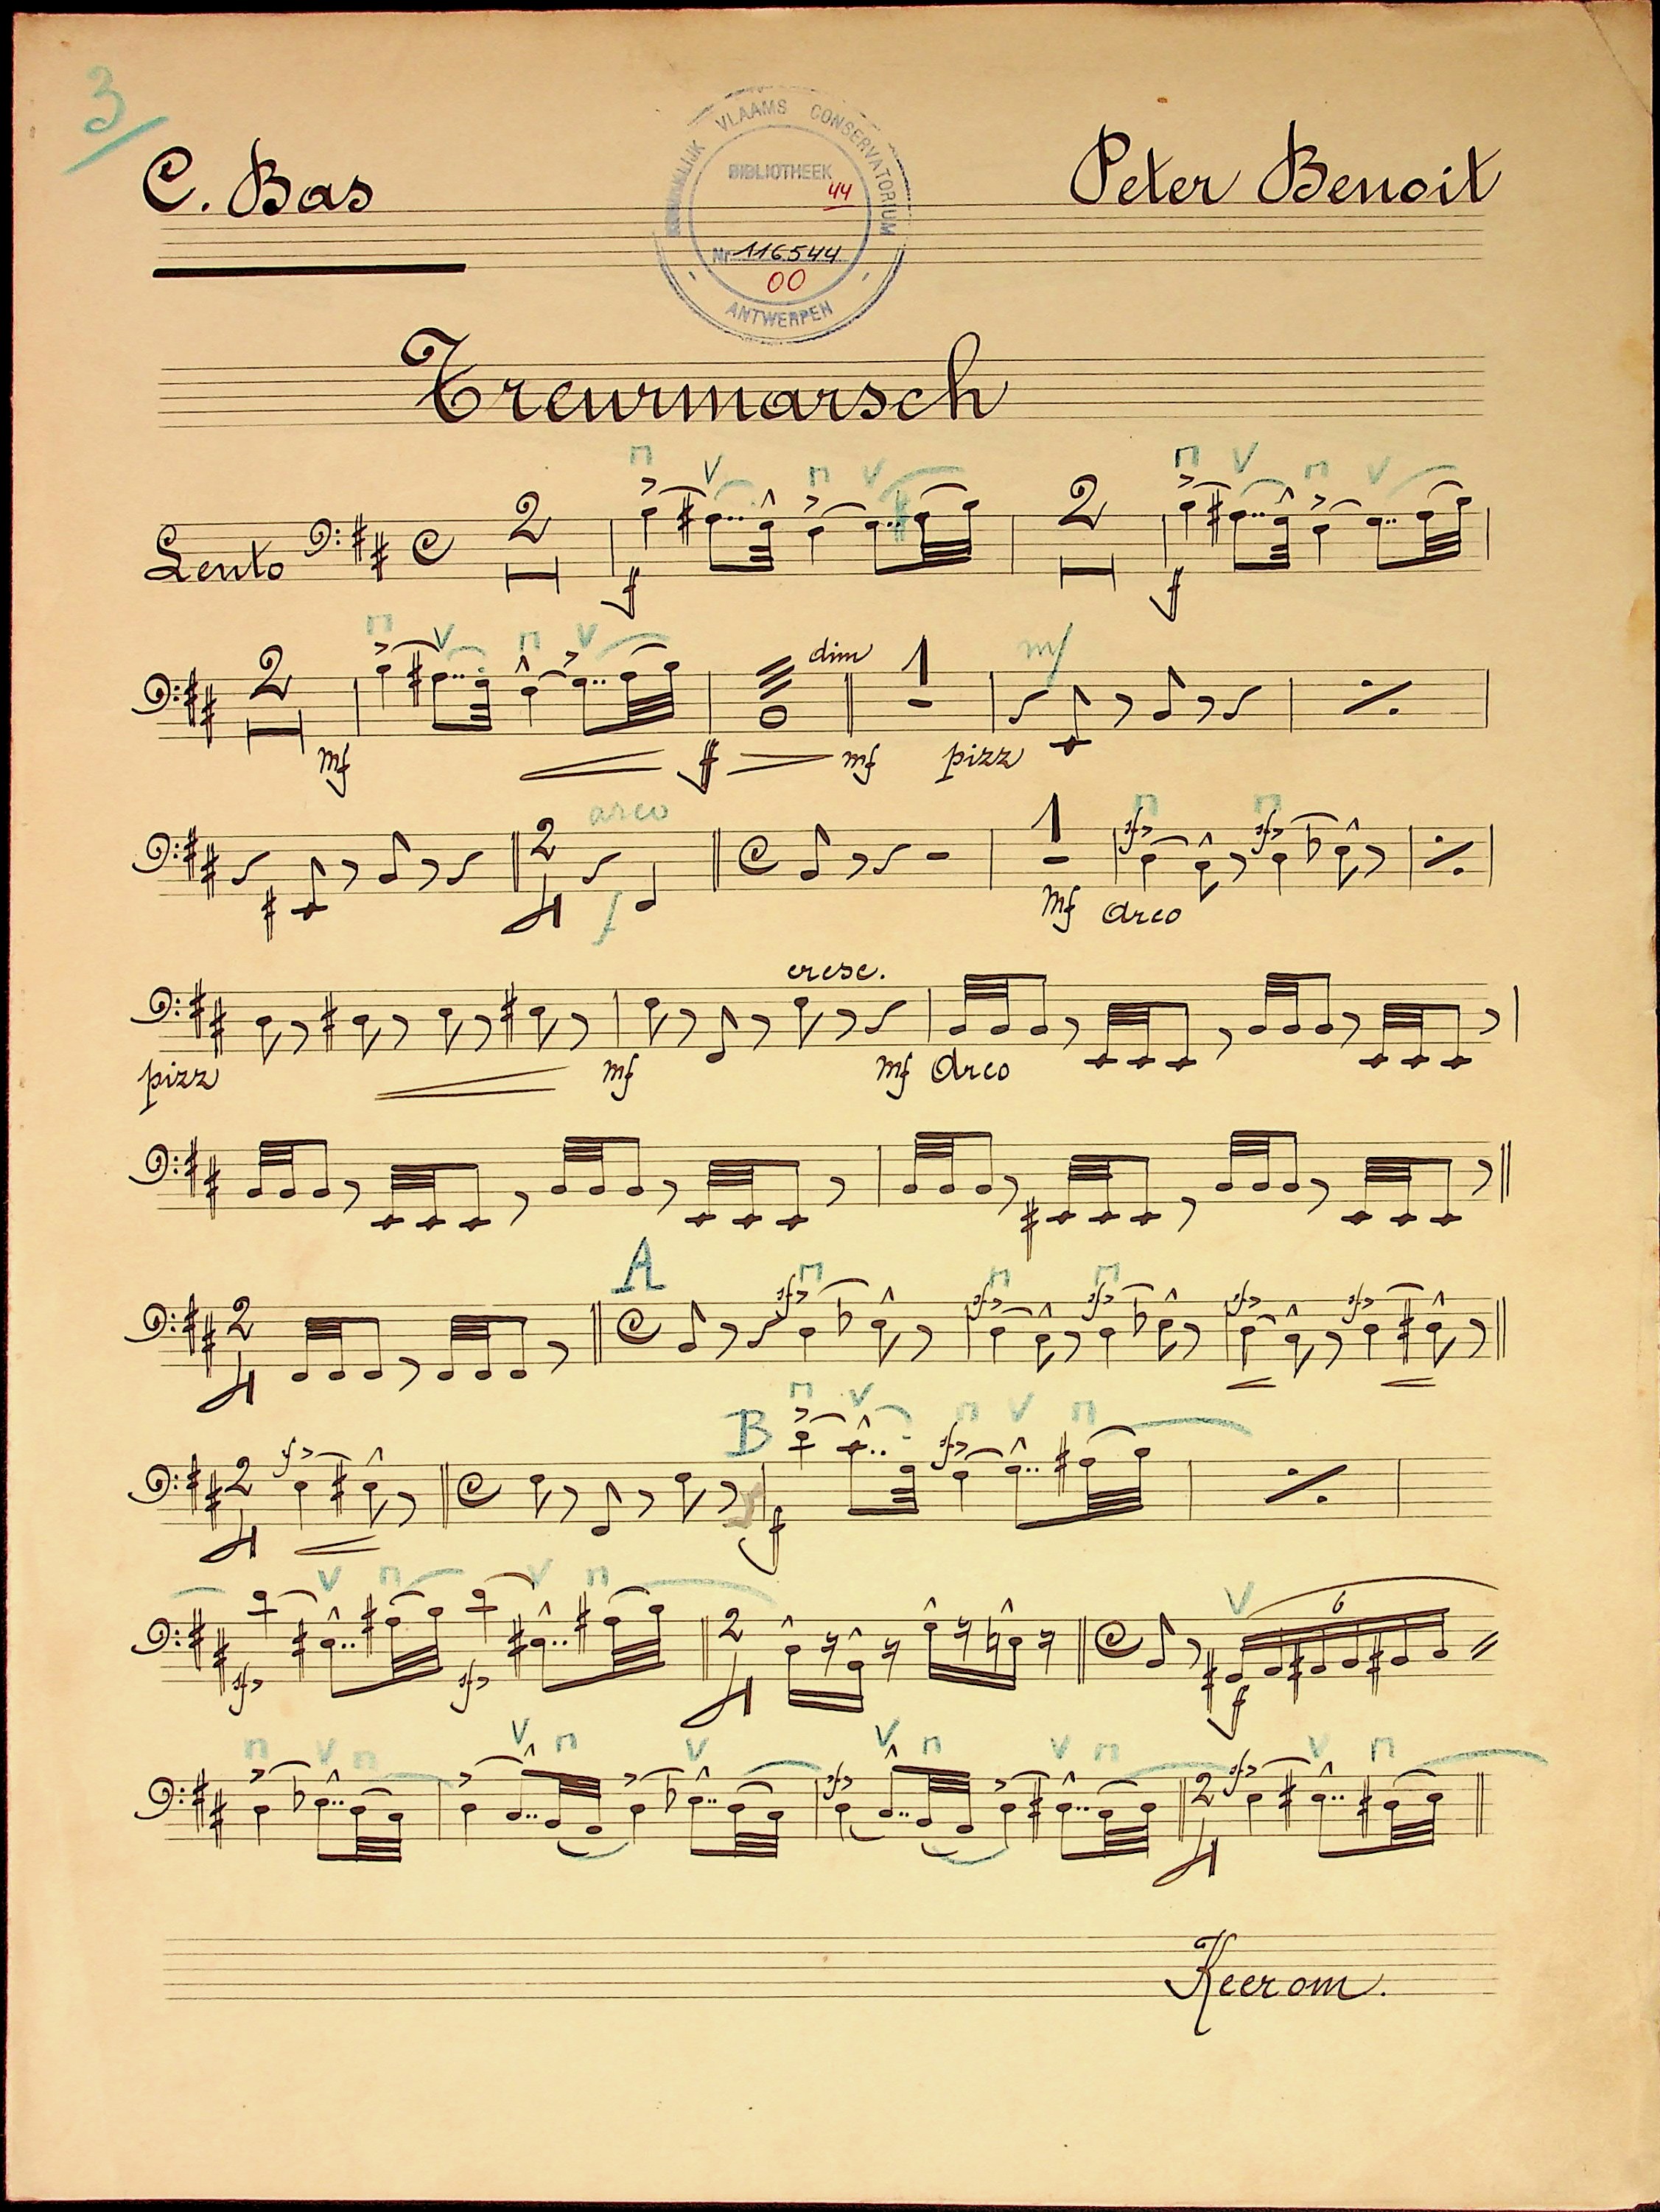 3
C. Bas
KONINKLIJK VLAAMS CONSERVATORIUM
BIBLIOTHEEK
44
Nr 116544
00
- ANTWERPEN -
Peter Benoit
Treurmarsch
Lento 2 f 2 f
2 mf f dim mf 1 pizz mf
2 4 arco f 1 mf arco sf sf
pizz mf cresc. mf arco
2 4 A sf sf sf sf sf
2 4 sf B f sf
sf sf 2 4 6 f
sf 2 4 sf
Keer om.